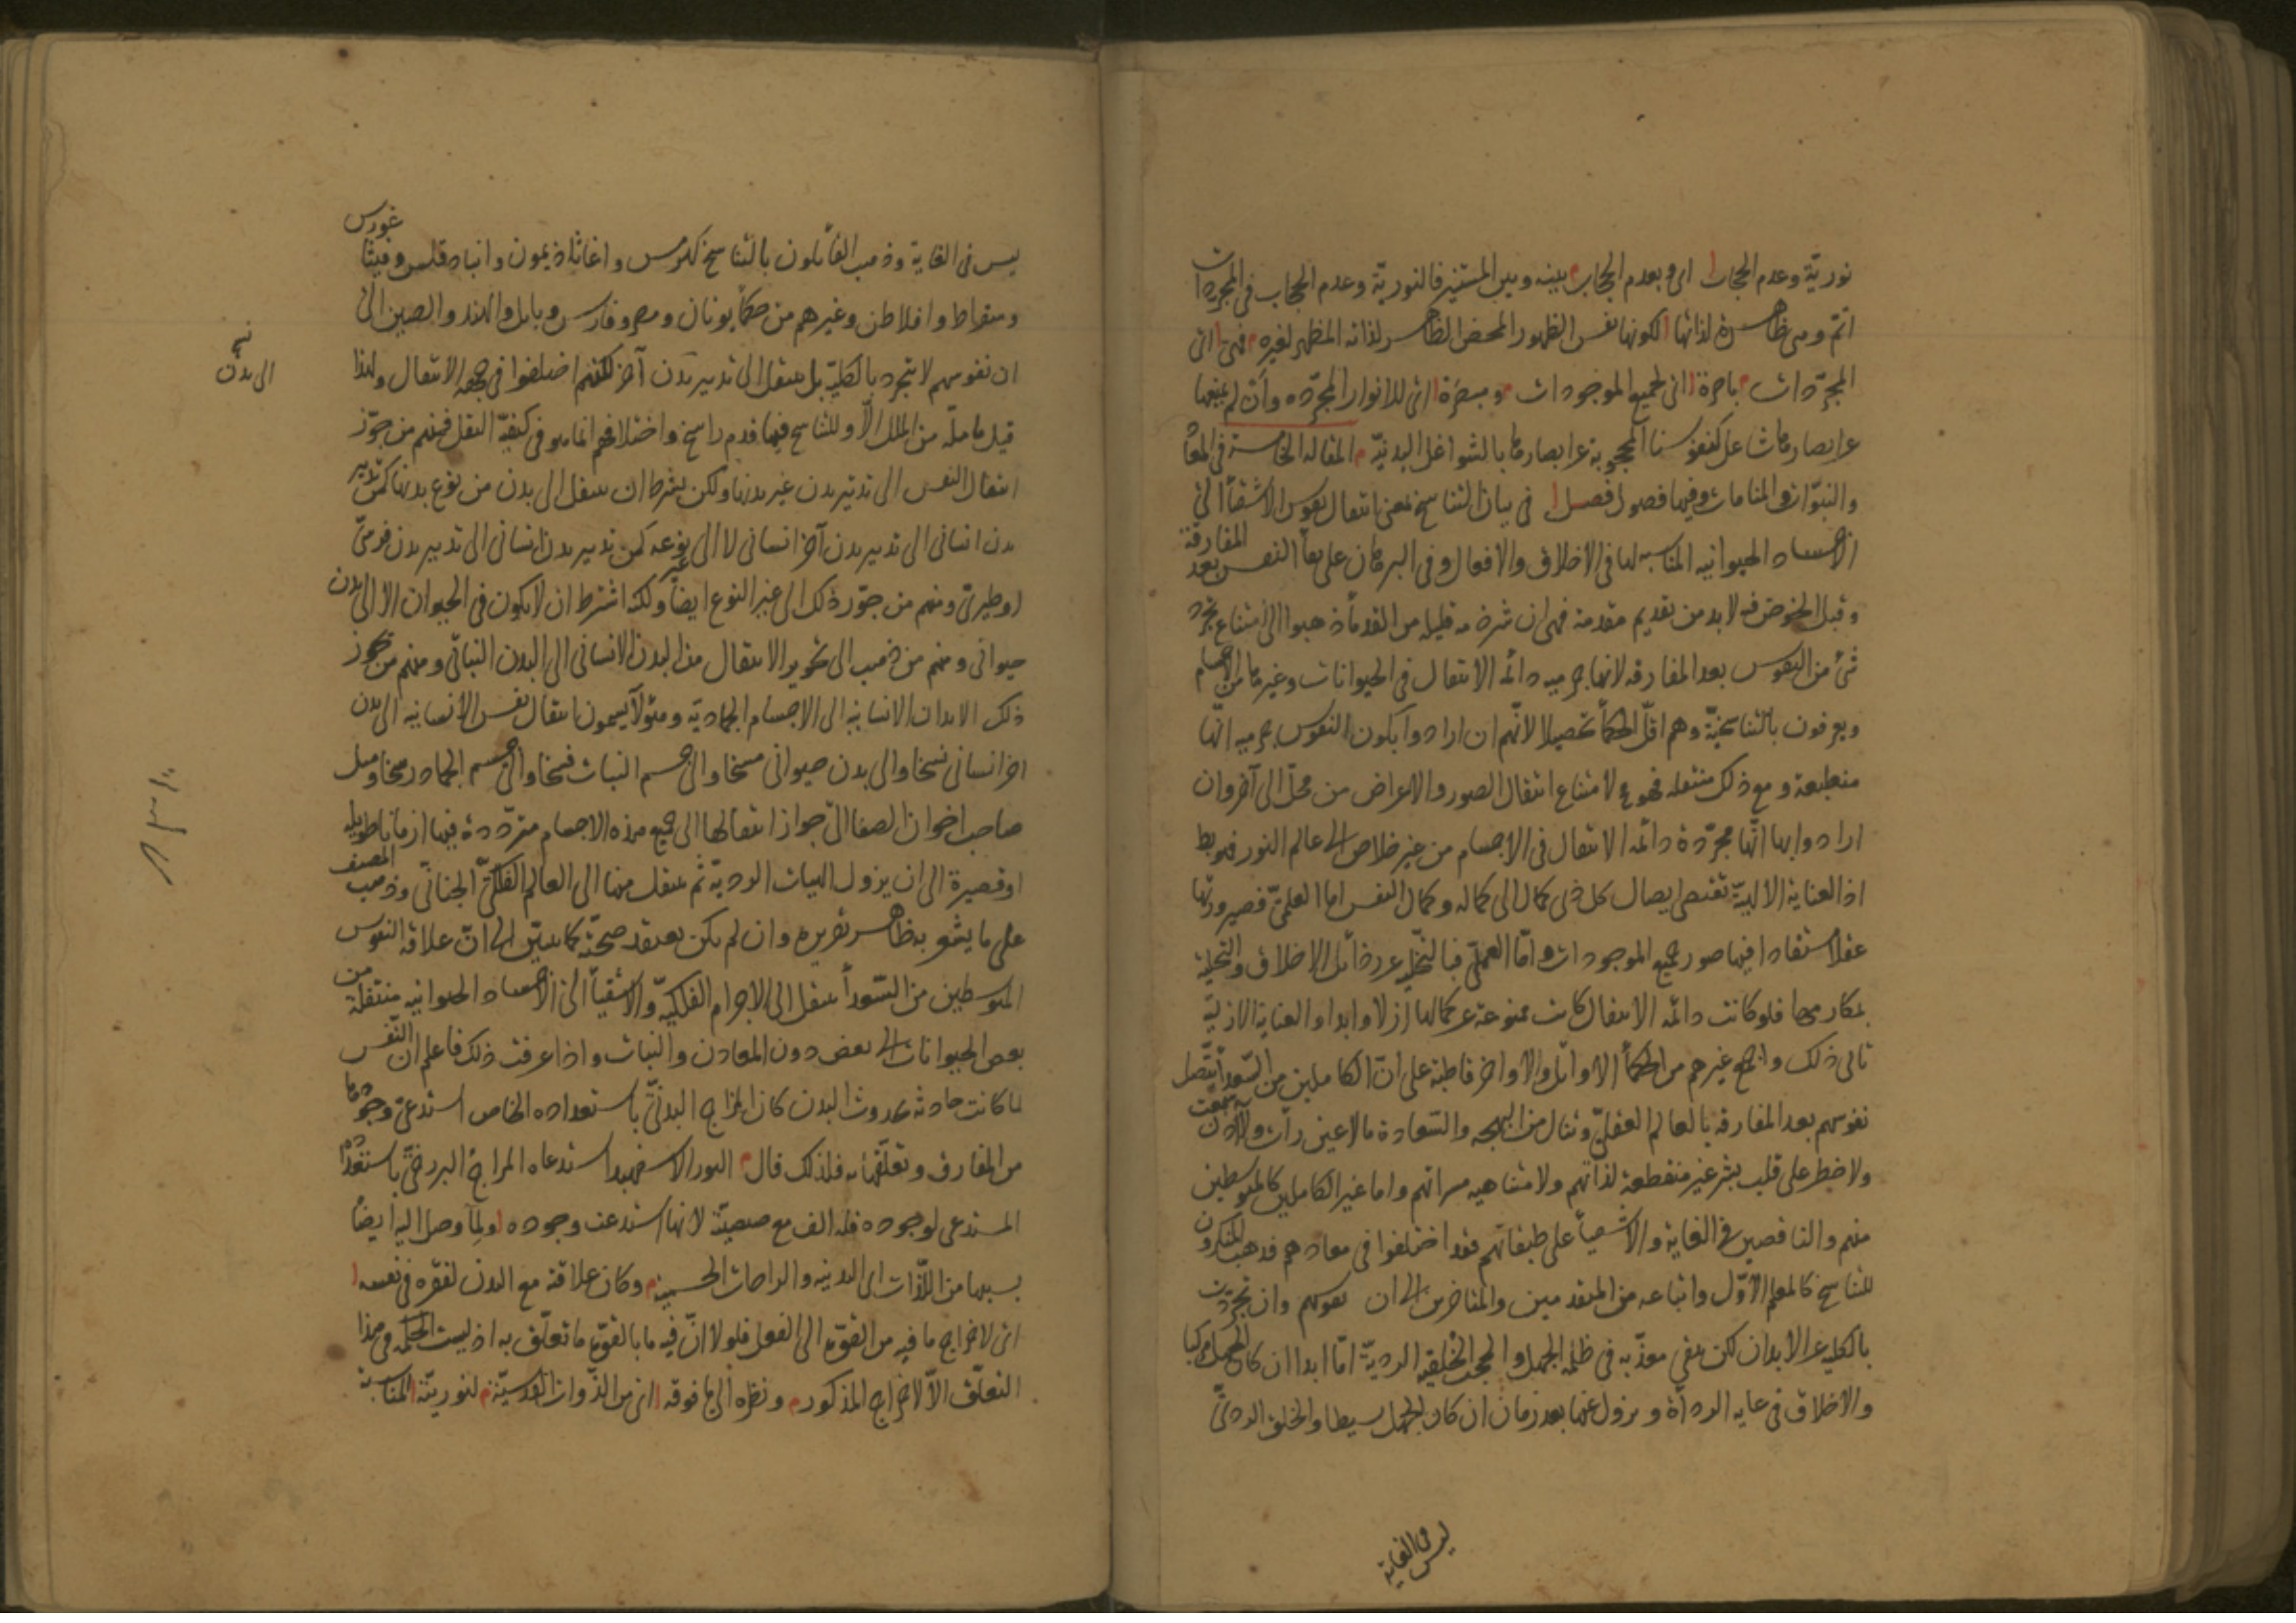 نورية وعدم الحجاب ا اى وبعدم الحجاب م بينه وبين المستنير فالنورية وعدم الحجاب فى المجردات
اتم وهى ظاهرة لذاتها ا لكونها نفس الظهور المحض الظاهر لذاته المظهر لغيره م فهى ا اى
المجردات م باصرة ا اى لجميع الموجودات م ومبصرة ا اى للانوار المجرده وان لم يمنعها
عن ابصارها شاغل كنفوسنا المحجوبة عن ابصارها بالشواغل البدنية م المقاله الخامسة فى المعاد
والنبوات والمنامات وفيها فصول فصل ا فى بيان التناسخ بمعنى انتقال نفوس الاشقياء الى
الاجساد الحيوانيه المناسبه لها فى الاخلاق والافعال وفى البرهان على بقاء النفس بعد المفارقة
وقبل الخوض فيه لابد من تقديم مقدمة فهى ان شرذمه قليله من القدماء ذهبوا الى امتناع تجرد
شئ من النفوس بعد المفارقه لانها جرميه دائمه الانتقال فى الحيوانات وغيرها من الاجسام
ويعرفون بالتناسخية وهم اقل الحكماء تحصيلا لانهم ان ارادوا بكون النفوس جرميه انها
منطبعة ومع ذلك منتقله فهو ع لامتناع انتقال الصور والاعراض من محل الى آخر وان
ارادوا بها انها مجردة دائمه الانتقال فى الاجسام من غير خلاص الى عالم النور فهو بط
اذ العناية الالهية تقتضى ايصال كل ذى كمال الى كماله وكمال النفس اما العلمى فصيرورتها
عقلا مستفادا فيها صور جميع الموجودات واما العملى فبالتخليه عن رذائل الاخلاق والتحلية
بمكارمها فلو كانت دائمه الانتقال كانت ممنوعة عن كمالها ازلا وابدا والعناية الازلية
تابى ذلك واجمع غيرهم من الحكماء الاوائل والاواخر قاطبة على ان الكاملين من السعداء يتصل
نفوسهم بعد المفارقه بالعالم العقلى وتنال من البهجه والسعادة ما لا عين رأت ولا اذن سمعت
ولا خطر على قلب بشر غير منقطعة لذاتهم ولا متناهيه مسراتهم واما غير الكاملين كالمتوسطين
منهم والناقصين فى الغايه والاشقياء على طبقاتهم فقد اختلفوا فى معادهم فذهب المنكرون
للتناسخ كالمعلم الاول واتباعه من المتقدمين والمتاخرين الى ان نفوسهم وان تجردت
بالكليه عن الابدان لكن تبقى معذبه فى ظلمة الجهل والحجب الخلقيه الردية اما ابدا ان كان الجهل مركبا
والاخلاق فى غايه الرداءة ويزول عنها بعد زمان ان كان الجهل بسيطا والخلق الردى
ليس فى الغاية
ليس فى الغاية وذهب القائلون بالتناسخ كهرمس واغاثاذيمون وانباذقلس وفيثاغورس
وسقراط وافلاطن وغيرهم من حكماء يونان ومصر وفارس وبابل والهند والصين الى
ان نفوسهم لا تتجرد بالكلية بل تنتقل الى تدبير بدن آخر لكنهم اختلفوا فى جهه الانتقال ولهذا
قيل ما ملة من الملل الا وللتناسخ فيها قدم راسخ واختلافهم انما هو فى كيفية النقل فمنهم من جوز
انتقال النفس الى تدبير بدن غير بدنها ولكن بشرط ان تنتقل الى بدن من نوع بدنها كمن تدبير
بدن انسانى الى تدبير بدن آخر انسانى لا الى غير نوعه كمن تدبير بدن انسانى الى تدبير بدن فرسى
او طيرى ومنهم من جوز ذلك الى غير النوع ايضا ولكنه اشترط ان لا يكون فى الحيوان الا الى بدن
حيوانى ومنهم من ذهب الى تجويز الانتقال من البدن الانسانى الى البدن النباتى ومنهم من جوز
ذلك الابدان الانسانيه الى الاجسام الجمادية وهؤلاء يسمون انتقال نفس الانسانيه الى بدن
اخر انسانى نسخا والى بدن حيوانى مسخا والى جسم النبات فسخا والى جسم الجماد رسخا وميل
صاحب اخوان الصفا الى جواز انتقالها الى جميع هذه الاجسام مترددة فيها ازمانا طويله
او قصيرة الى ان يزول الهيات الردية ثم تنتقل منها الى العالم الفلكى الجنانى وذهب المصنف
على ما يشعر به ظاهر تقريره وان لم يكن يعتقد صحته كما يتبين الى ان علاقه النفوس
المتوسطين من السعداء تنتقل الى الاجرام الفلكية والاشقياء الى الاجساد الحيوانيه منتقلة من
بعض الحيوانات الى بعض دون المعادن والنبات واذا عرفت ذلك فاعلم ان النفس
لما كانت حادثه بحدوث البدن كان المزاج البدنى باستعداده الخاص استدعى وجودها
من المفارق وتعلقها به فلذلك قال م النور الاسفهبد استدعاه المزاج البرزخى باستعداده
المستدعى لوجوده فله الف مع صيصيته لانها استدعت وجوده ا ولما وصل اليه ايضا
بسببها من اللذات اى البدنيه والراحات الحسية م وكان علاقته مع البدن لفقره فى نفسه ا
اى لاخراج ما فيه من القوة الى الفعل فلولا ان فيه ما بالقوة ما تعلق به اذ ليست الحكمه فى هذا
التعلق الا لاخراج المذكور م ونظره الى ما فوقه ا اى من الذوات القدسية م لنوريته ا المناسبة
الى بدن